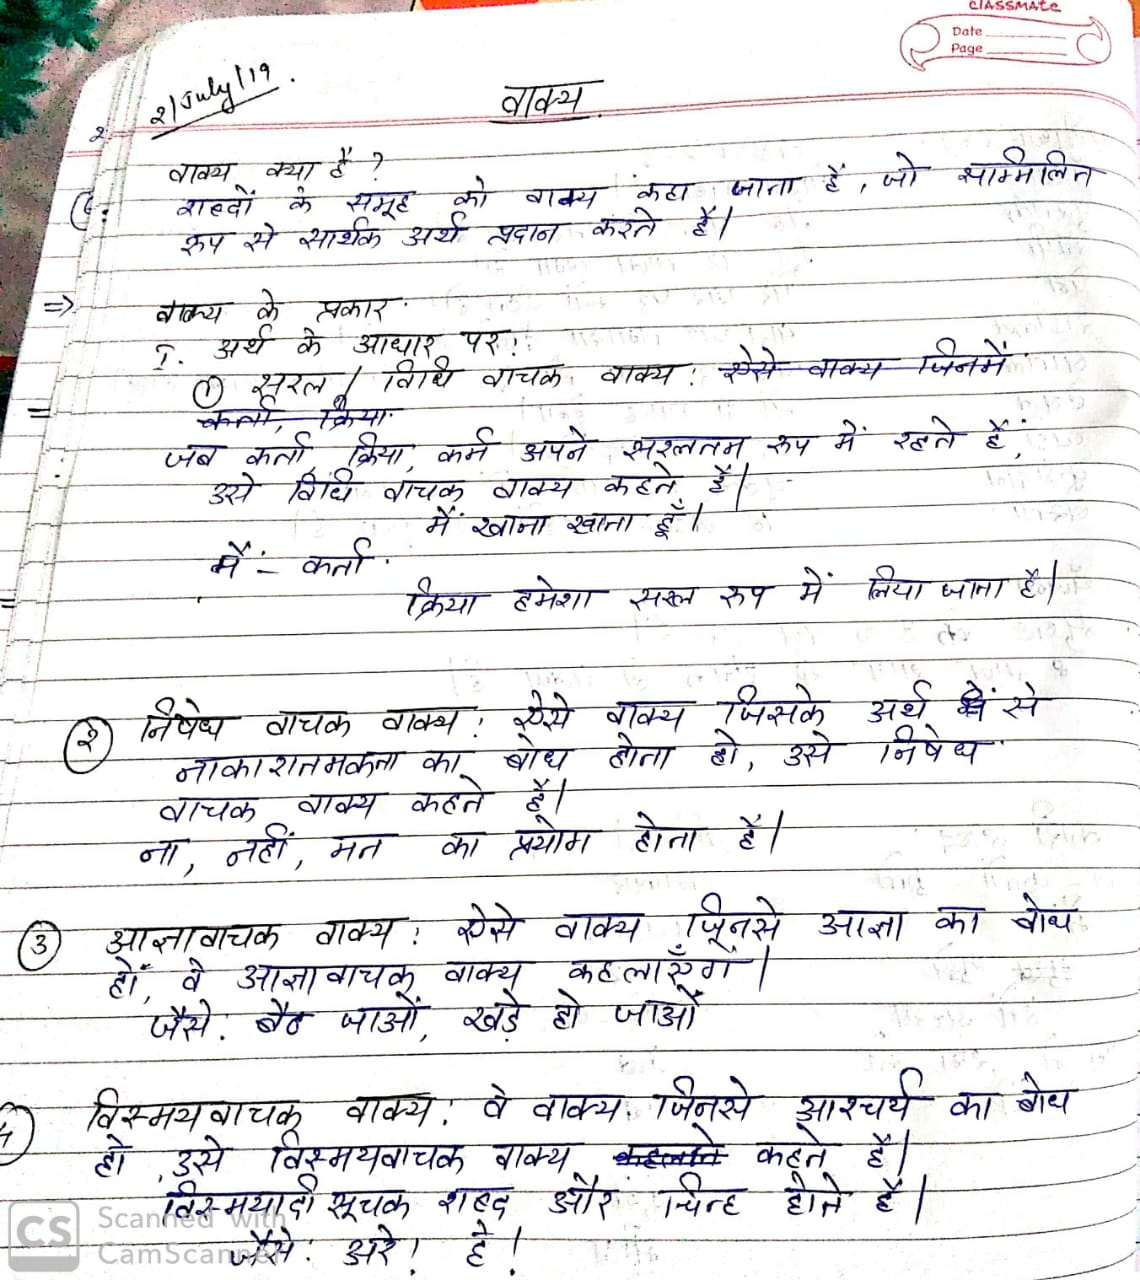 classmate
Date
Page
2/July/19.
वाक्य
वाक्य क्या है ?
शब्दों के समूह को वाक्य कहा जाता है, जो सम्मिलित
रूप से सार्थक अर्थ प्रदान करते हैं।
=> वाक्य के प्रकार
I. अर्थ के आधार पर:
① सरल / विधि वाचक वाक्य: ऐसे वाक्य जिनमें
कर्ता, क्रिया
जब कर्ता, क्रिया, कर्म अपने सरलतम रूप में रहते हैं,
उसे विधि वाचक वाक्य कहते हैं।
मैं खाना खाता हूँ।
मैं - कर्ता
क्रिया हमेशा सरल रूप में लिया जाता है।
② निषेध वाचक वाक्य: ऐसे वाक्य जिसके अर्थ से
नाकारातमकता का बोध होता हो, उसे निषेध
वाचक वाक्य कहते हैं।
ना, नहीं, मत का प्रयोग होता है।
③ आज्ञावाचक वाक्य: ऐसे वाक्य जिनसे आज्ञा का बोध
हों, वे आज्ञावाचक वाक्य कहलाएँगें।
जैसे: बैठ जाओं, खड़े हो जाओं
4 विस्मयवाचक वाक्य: वे वाक्य जिनसे आश्चर्य का बोध
हो, उसे विस्मयवाचक वाक्य कहलाते कहते हैं।
विस्मयादी सूचक शब्द और चिन्ह होते हैं।
जैसे: अरे! हे!
CS Scanned with
CamScanner